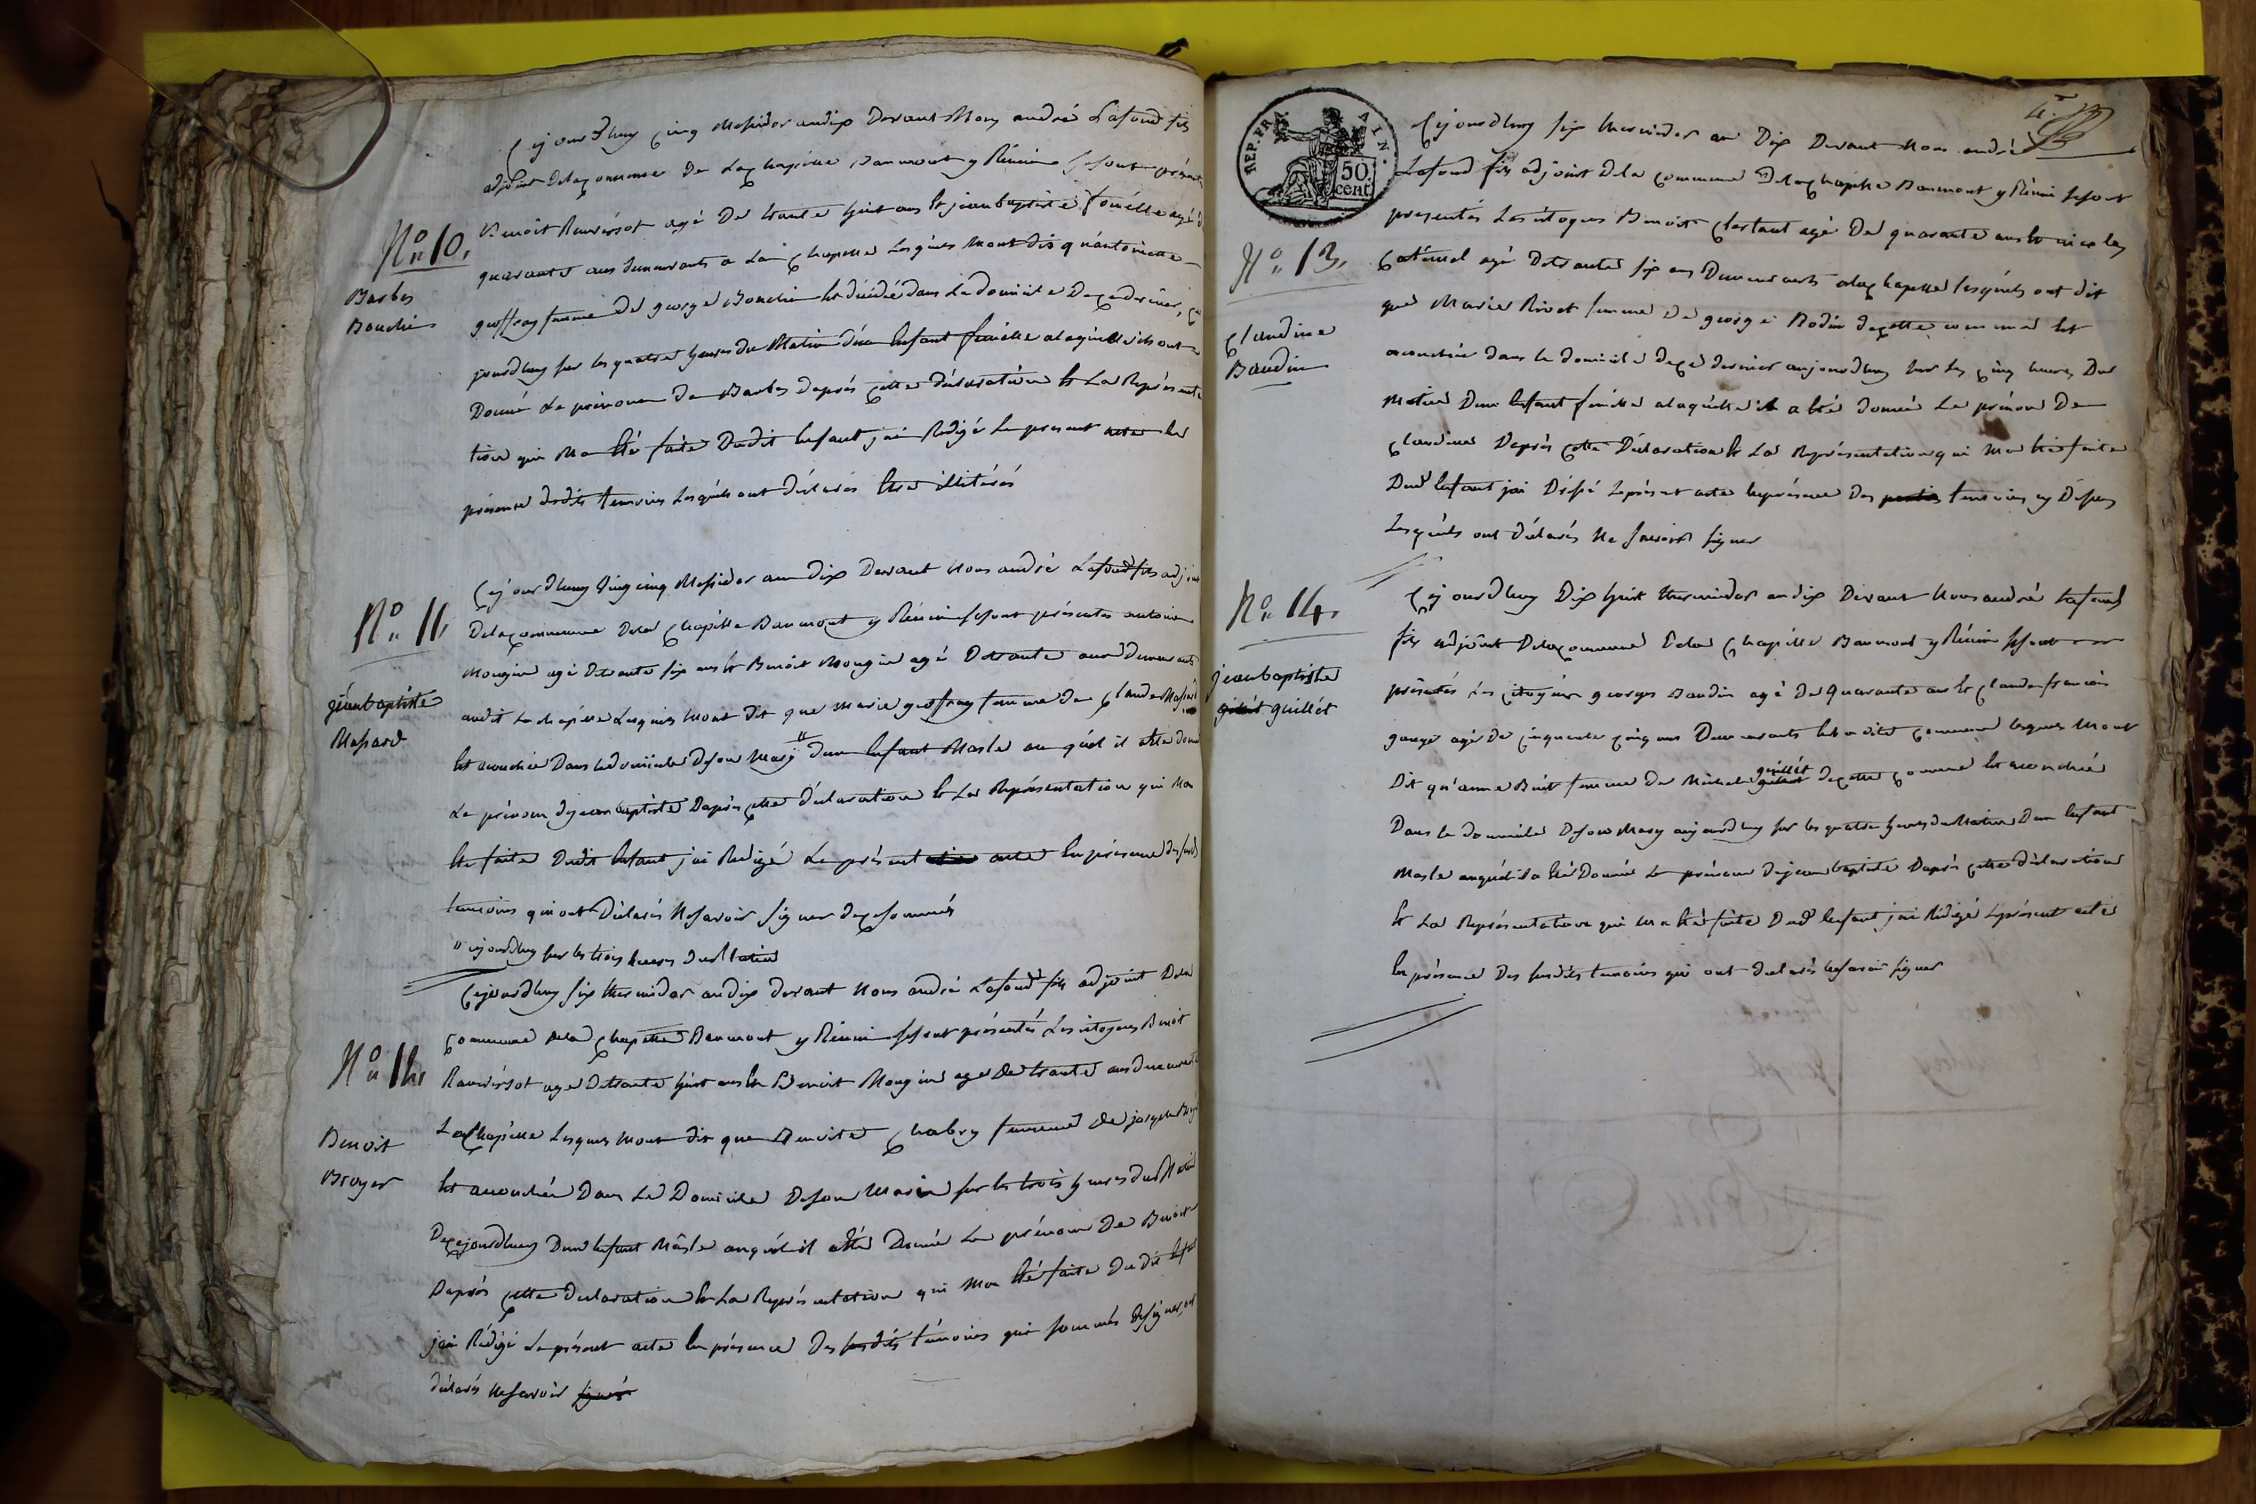 Cejourdhuy cinq Messidor andix Devant Nous andré Lafond fils
adjoint delacommune De Lachapelle Baumont y Réunie sesont présentés
N° 10.
Barbes
Bouchis
Benoit Rauvirsot agé De trante huit ans et jeanbaptiste agé de
quarante ans demeurants a La Chapelle Lesquels Mont dit qu'antoinette
geoffray femme De george Bouchié dans Le domicile De ce dernier, ce
jourdhuy sur les quatre heures du Matin d'un Enfant femelle alaquelle ils ont
Donné Le prénom De Barbes daprés cette déclaration et La Représenta
tion qui Ma Eté faite Dudit Enfant jai Rédigé Le present acte En
présence desdits temoins Lesquels ont déclarés Etre illitérés
N° 11.
jéanbaptiste
Massard
Cejourdhuy Vingcinq Messidor an dix Devant Nous andré Lafond fils adjoint
Delacommune Dela Chapelle Baumont y Réunie sesont présentés antoine
Mongin agé De trante six ans et Benoit Mongin agé De trante ans Demeurants
audit La chapelle Lesquels Mont dit que Marie geoffray femme De Claude Massard
Est acouchée Dans ledomicile Deson Mary " dun Enfant Masle au quél il aété donné
Le prénom dejeanbaptiste Daprés cette déclaration et La Représentation qui Ma
Eté faite Dudit Enfant jai Redigé Le présent acte En présence des susdits
temoins qui ont Déclarés Nesavoir Signer decesommés
" cejourdhuy sur les trois heures du Matin
N° 12.
Benoit
Broyer
Cejourdhuy six thermidor andix devant Nous andré Lafond fils adjoint Dela
Commune dela Chapelle Baumont y Réunie sesont présentés Les citoyens Benoit
Rauvirsot agé De trante huit ans et Benoit Mongin agé De trante ans demeurants
LaChapelle Lesquels Mont dit que Benoite Chabry femme De jacques Broyer
Est acouchée Dans Le Domicile Deson Marie sur les trois heures du Matin
Decejourdhuy Dun Enfant Mâsle auquél il aété Donné Le prénom De Benoit
Daprés cette declaration et La Représentation qui Ma Eté faite Du dit Enfant
jai Rédigé Le présent acte En présence Des susdits témoins qui sommés Designer, ont
déclarés Nesavoir signér
REP. FRA. AIN.
50. cent.
4.
N° 13.
Claudine
Baudin
Cejourdhuy six thermidor an Dix Devant Nous andré
Lafond fils adjoint Dela Commune Delachapelle Baumont y Réuni sesont
presentés Les citoyens Benoit Chastant agé De quarante ans et nicolas
agé Detrante six ans Demeurants alachapelle Lesquéls ont dit
que Marie Rivet femme De george Bodin decette commune Est
acouchée dans le domicile dece dernier aujourdhuy sur Les cinq heures Du
Matin Dun Enfant femelle alaquélle il a Eté donné Le prénom De
Claudine Daprés cette Déclaration et La Représentation qui Ma Eté faite
Dud Enfant jai Leprésent acte Enprésence Des temoins cy Dessus
Lesquéls ont déclarés Ne Savoir signer
N° 14.
jeanbaptiste
guillét
Cejourdhuy Dix huit thermidor andix Devant Nous andré Lafond
fils adjoint Delacommune Dela Chapelle Baumont y Réunie sesont
présentés Les citoyens georges Baudin agé De quarante ans et Claude francois
agé de cinquante cinq ans Demeurants Enladite Commune Lesquels Mont
Dit qu'anne Buit femme De Michel guillét decette commune Est acouchée
Dans Le domicile Deson Mary aujourdhuy sur les quatre heures du Matin Dun Enfant
Masle auquél il a Eté Donné Le prénom Dejeanbaptiste Daprés cette déclaration
et La Représentation qui Ma Eté faite Dud Enfant jai Rédigé Leprésent acte
En présence Des susdits temoins qui ont declarés nesavoir signer